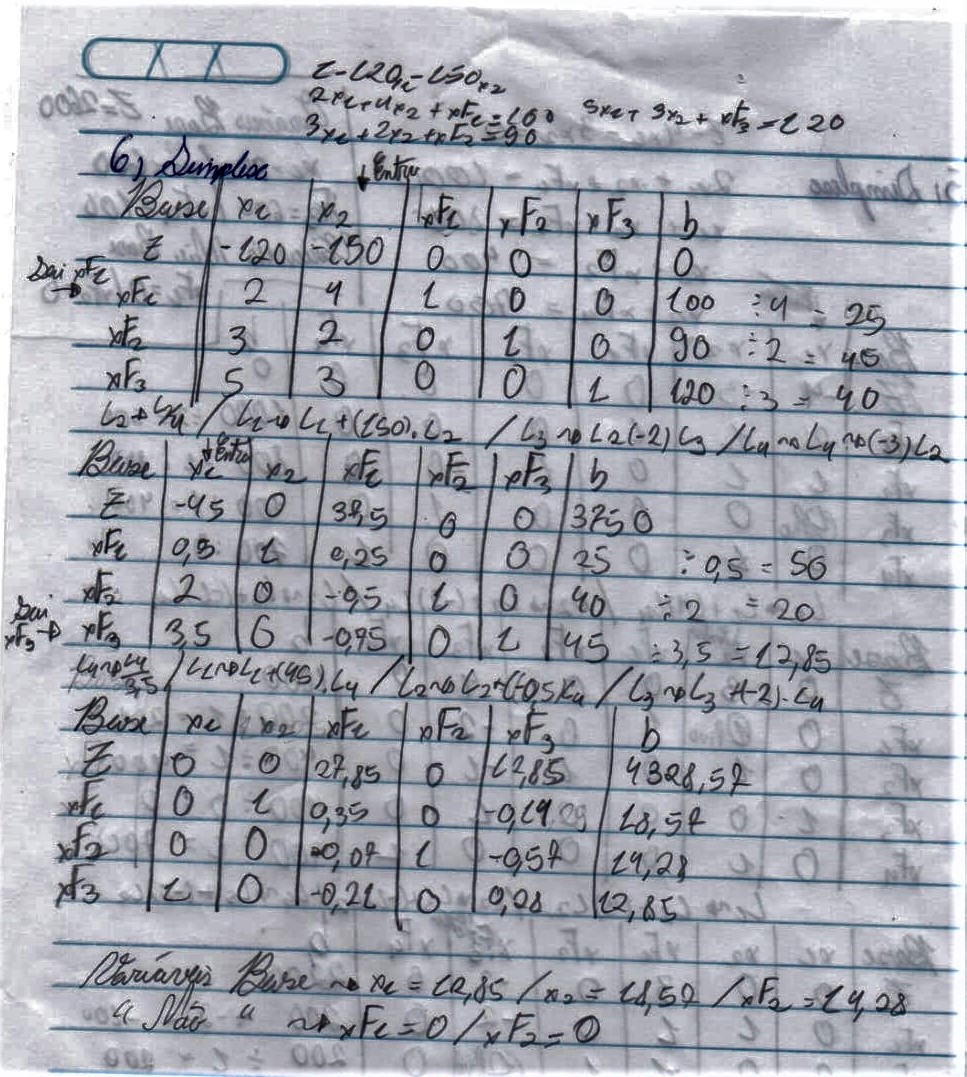 Z-120x1-150x2
2x1+4x2+xF1=100 5x1+3x2+xF3=120
3x1+2x2+xF2=90
6) Simplex ↓Entra
Base x1 x2 xF1 xF2 xF3 b
Z -120 -150 0 0 0 0
Sai xF1
→ xF1 2 4 1 0 0 100 ÷4 = 25
xF2 3 2 0 1 0 90 ÷2 = 45
xF3 5 3 0 0 1 120 ÷3 = 40
L2+L2/4 / L1→L1+(150).L2 / L3→L2(-2)L3 / L4→L4→(-3)L2
Base ↓Entra x1 x2 xF1 xF2 xF3 b
Z -45 0 37,5 0 0 3750
xF1 0,5 1 0,25 0 0 25 ÷0,5 = 50
xF2 2 0 -0,5 1 0 40 ÷2 = 20
Sai xF3→ xF3 3,5 0 -0,75 0 1 45 ÷3,5 = 12,85
L4→L4/3,5 / L1→L1+(45).L4 / L2→L2+(-0,5)L4 / L3→L3+(-2).L4
Base x1 x2 xF1 xF2 xF3 b
Z 0 0 27,85 0 12,85 4328,57
xF1 0 1 0,35 0 -0,14 18,57
xF2 0 0 -0,07 1 -0,57 14,28
xF3 1 0 -0,21 0 0,28 12,85
Variáveis Base → x1 = 12,85 / x2 = 18,57 / xF2 = 14,28
" Não " → xF1=0 / xF2=0